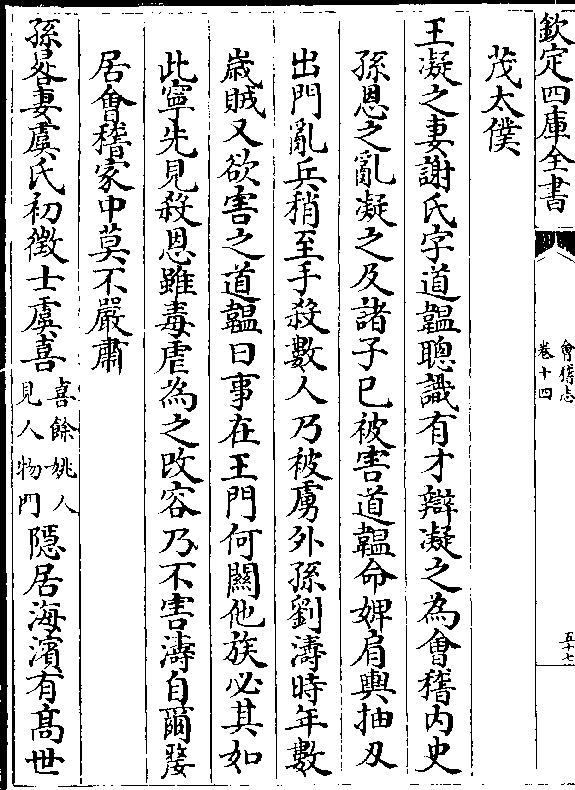 欽定四庫全書
會稽志
卷十四
五十七
茂太僕
王凝之妻謝氏字道韞聰識有才辯凝之為會稽內史
孫恩之亂凝之及諸子已被害道韞命婢肩輿抽刃
出門亂兵稍至手殺數人乃被虜外孫劉濤時年數
歲賊又欲害之道韞曰事在王門何關他族必其如
此寧先見殺恩雖毒虐為之改容乃不害濤自爾嫠
居會稽家中莫不嚴肅
孫晷妻虞氏初徵士虞喜
喜餘姚人
見人物門
隱居海濱有髙世